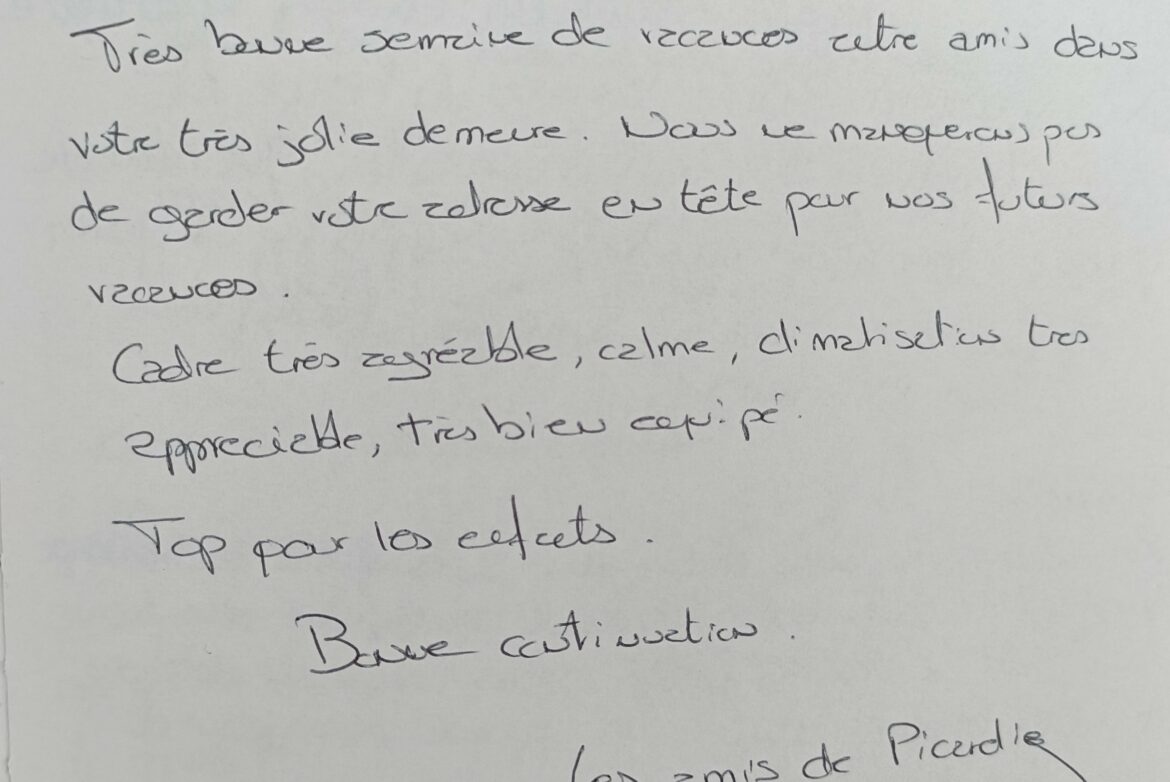 Très bonne semaine de vacances entre amis dans
votre très jolie demeure. Nous ne manquerons pas
de garder votre adresse en tête pour nos futurs
vacances.
Cadre très agréable, calme, climatisation tres
appreciable, très bien equipé.
Top pour les enfants.
Bonne continuation.
Les amis de Picardie